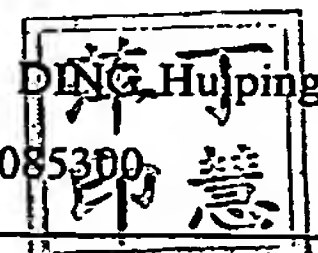 DING Huiping
085300
丁慧
印